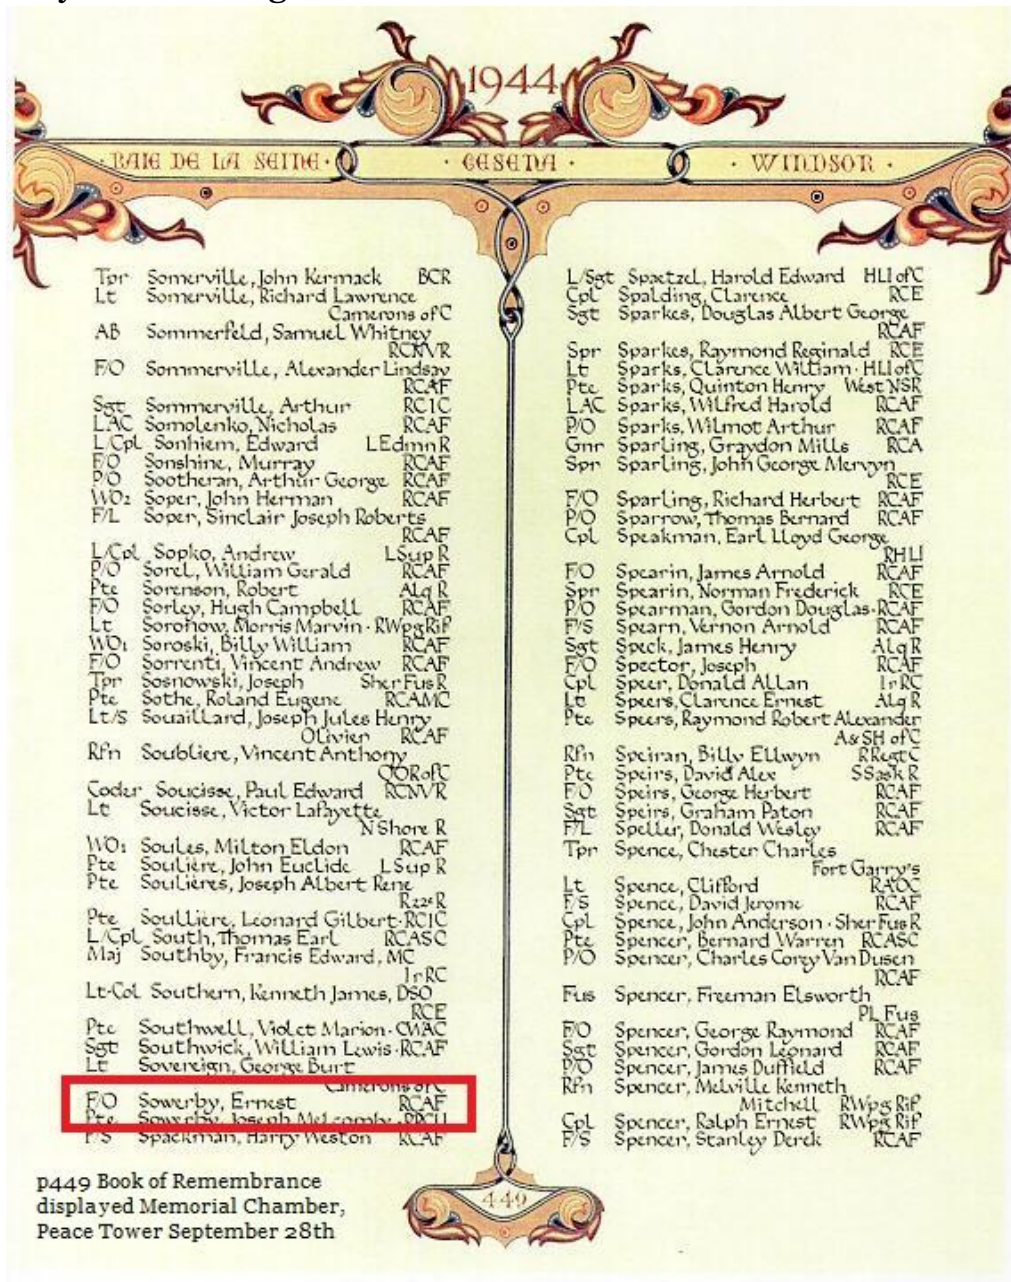 1944
BAIE DE LA SEINE · CESENA · WINDSOR ·
Tpr Somerville, John Kermack BCR
Lt Somerville, Richard Lawrence
Camerons of C
AB Sommerfeld, Samuel Whitney
RCNVR
F/O Sommerville, Alexander Lindsay
RCAF
Sgt Sommerville, Arthur RCIC
LAC Somolenko, Nicholas RCAF
L/Cpl Sonhiem, Edward LEdmnR
F/O Sonshine, Murray RCAF
P/O Sootheran, Arthur George RCAF
WO2 Soper, John Herman RCAF
F/L Soper, Sinclair Joseph Roberts
RCAF
L/Cpl Sopko, Andrew LSup R
P/O Sorel, William Gerald RCAF
Pte Sorenson, Robert Alq R
F/O Sorley, Hugh Campbell RCAF
Lt Soronow, Morris Marvin · RWpgRif
WO1 Soroski, Billy William RCAF
F/O Sorrenti, Vincent Andrew RCAF
Tpr Sosnowski, Joseph SherFusR
Pte Sothe, Roland Eugene RCAMC
Lt/S Souaillard, Joseph Jules Henry
Olivier RCAF
Rfn Soubliere, Vincent Anthony
QORofC
Coder Soucisse, Paul Edward RCNVR
Lt Soucisse, Victor Lafayette
N Shore R
WO1 Soules, Milton Eldon RCAF
Pte Soulière, John Euclide LSup R
Pte Soulières, Joseph Albert Rene
R22eR
Pte Soullière, Leonard Gilbert · RCIC
L/Cpl South, Thomas Earl RCASC
Maj Southby, Francis Edward, MC
IrRC
Lt-Col Southern, Kenneth James, DSO
RCE
Pte Southwell, Violet Marion · CWAC
Sgt Southwick, William Lewis · RCAF
Lt Sovereign, George Burt
Camerons of C
F/O Sowerby, Ernest RCAF
Pte Sowerby, Joseph
F/S Spackman, Harry Weston RCAF
L/Sgt Spaetzel, Harold Edward HLI of C
Cpl Spalding, Clarence RCE
Sgt Sparkes, Douglas Albert George
RCAF
Spr Sparkes, Raymond Reginald RCE
Lt Sparks, Clarence William · HLI of C
Pte Sparks, Quinton Henry West NSR
LAC Sparks, Wilfred Harold RCAF
P/O Sparks, Wilmot Arthur RCAF
Gnr Sparling, Graydon Mills RCA
Spr Sparling, John George Mervyn
RCE
F/O Sparling, Richard Herbert RCAF
P/O Sparrow, Thomas Bernard RCAF
Cpl Speakman, Earl Lloyd George
RHLI
F/O Spearin, James Arnold RCAF
Spr Spearin, Norman Frederick RCE
P/O Spearman, Gordon Douglas · RCAF
F/S Spearn, Vernon Arnold RCAF
Sgt Speck, James Henry Alq R
F/O Spector, Joseph RCAF
Cpl Speer, Donald Allan IrRC
Lt Speers, Clarence Ernest Alq R
Pte Speers, Raymond Robert Alexander
A&SH of C
Rfn Speiran, Billy Ellwyn RRegtC
Pte Speirs, David Alex SSask R
F/O Speirs, George Herbert RCAF
Sgt Speirs, Graham Paton RCAF
F/L Speller, Donald Wesley RCAF
Tpr Spence, Chester Charles
Fort Garry's
Lt Spence, Clifford RAOC
F/S Spence, David Jerome RCAF
Cpl Spence, John Anderson · SherFusR
Pte Spencer, Bernard Warren RCASC
P/O Spencer, Charles Corey Van Dusen
RCAF
Fus Spencer, Freeman Elsworth
PL Fus
F/O Spencer, George Raymond RCAF
Sgt Spencer, Gordon Leonard RCAF
P/O Spencer, James Duffield RCAF
Rfn Spencer, Melville Kenneth
Mitchell RWpg Rif
Cpl Spencer, Ralph Ernest RWpg Rif
F/S Spencer, Stanley Derek RCAF
p449 Book of Remembrance
displayed Memorial Chamber,
Peace Tower September 28th
449